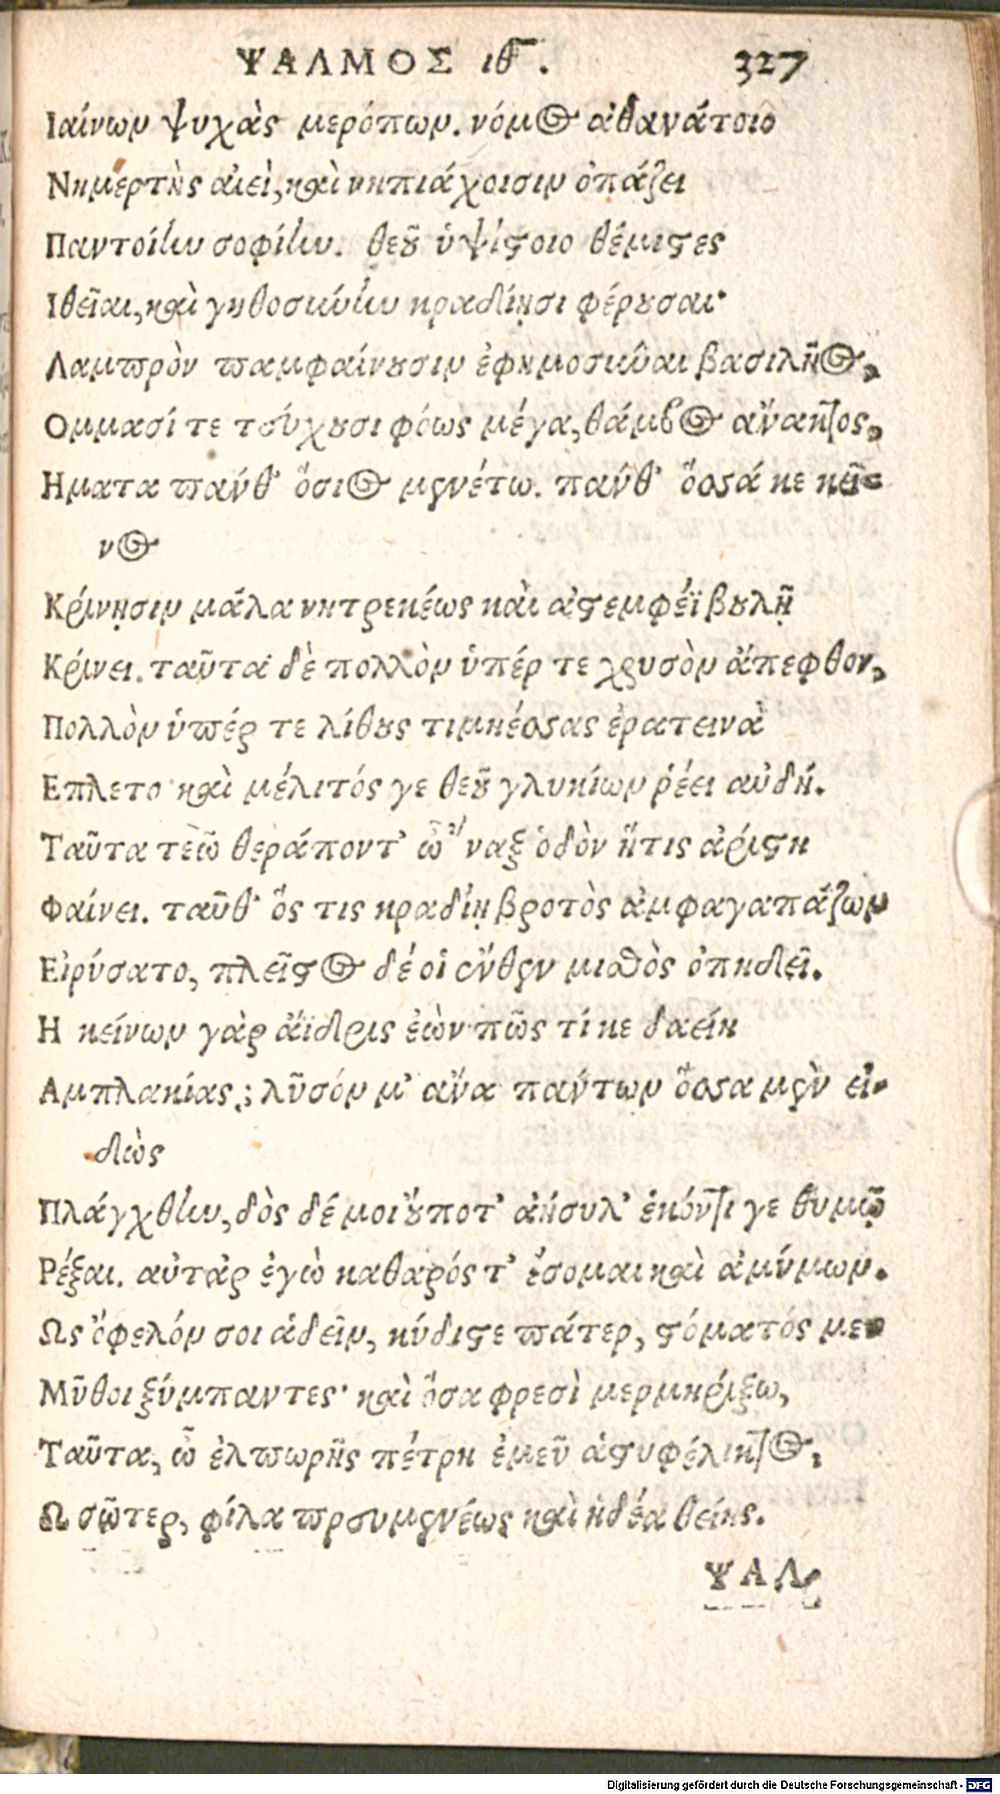 ΨΑΛΜΟΣ ιθ. 327
Ιαίνων ψυχὰς μερόπων. νόμος ἀθανάτοιο
Νημερτὴς αἰεὶ, καὶ νηπιάχοισιν ὀπάζει
Παντοίην σοφίην. θεοῦ ὑψίστοιο θέμιστες
Ιθεῖαι, καὶ γηθοσύνην κραδίῃσι φέρουσαι·
Λαμπρὸν παμφαίνουσιν ἐφημοσύναι βασιλῆος,
Ομμασί τε τεύχουσι φόως μέγα, θάμβος ἄνακτος,
Ηματα πάνθ' ὅσιος μενέτω. πάνθ' ὅσσά κε κεῖ-
νος
Κρίνῃσιν μάλα νητρεκέως καὶ ἀστεμφέϊ βουλῇ
Κρίνει. ταῦτα δὲ πολλὸν ὑπέρ τε χρυσὸν ἄπεφθον,
Πολλὸν ὑπέρ τε λίθους τιμηέσσας ἐρατεινὰ
Επλετο· καὶ μέλιτός γε θεοῦ γλυκίων ῥέει αὐδή.
Ταῦτα τεῷ θεράποντ' ὦ ναξ ὁδὸν ἥτις ἀρίστη
Φαίνει. ταῦθ' ὅς τις κραδίῃ βροτὸς ἀμφαγαπάζων
Εἰρύσατο, πλεῖστος δέ οἱ ἔνθεν μισθὸς ὀπηδεῖ.
Η κείνων γὰρ ἄϊδρις ἐὼν πῶς τί κε δαείη
Αμπλακίας; λῦσόν μ' ἄνα πάντων ὅσσα μὲν εἰ-
δὼς
Πλάγχθην, δὸς δέ μοι οὔποτ' ἀήσυλ' ἑκόντι γε θυμῷ
Ρέξαι. αὐτὰρ ἐγὼ καθαρός τ' ἔσομαι καὶ ἀμύμων.
Ως ὄφελόν σοι ἁδεῖν, κύδιστε πάτερ, στόματός μευ
Μῦθοι ξύμπαντες· καὶ ὅσα φρεσὶ μερμηρίξω,
Ταῦτα, ὦ ἐλπωρῆς πέτρη ἐμεῦ ἀστυφέλικτος,
Ω σῶτερ, φίλα πρευμενέως καὶ ἡδέα θείης.
ΨΑΛ-
Digitalisierung gefördert durch die Deutsche Forschungsgemeinschaft - DFG